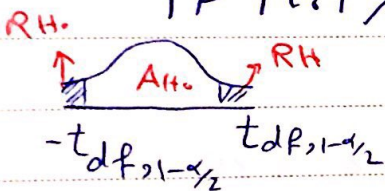 RH₀
RH
AH₀
-t df, 1-α/2
t df, 1-α/2